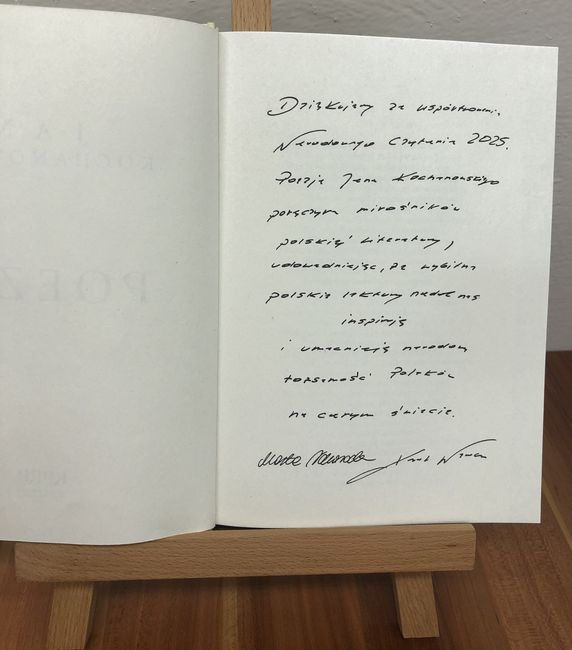 Dziękujemy za współtworzenie
Narodowego Czytania 2025.
Poezja Jana Kochanowskiego
połączyła miłośników
polskiej literatury,
udowadniając, że wybitne
polskie lektury nadal nas
inspirują
i umacniają narodową
tożsamość Polaków
na całym świecie.
Marta Nawrocka